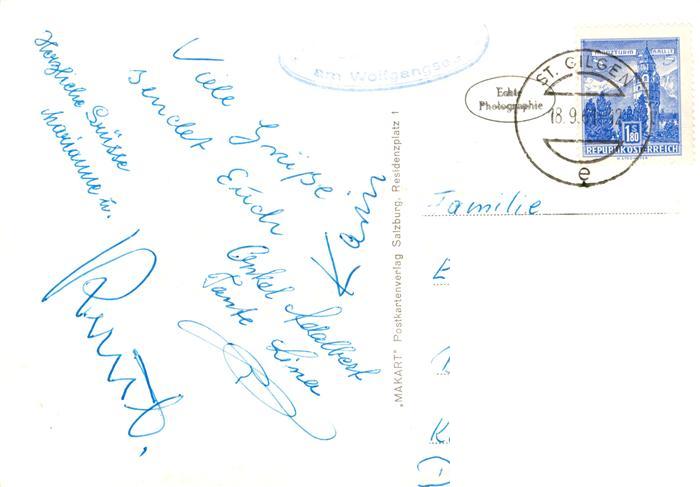 Viele Grüße
sendet Euch
Onkel Adalbert
Tante Lina
Herzliche Grüsse
Marianne u.
am Wolfgangsee
Echte
Photographie
ST. GILGEN
18.9.61
e
1 S 80
REPUBLIK ÖSTERREICH
Familie
E
K
„MAKART" Postkartenverlag Salzburg, Residenzplatz 1